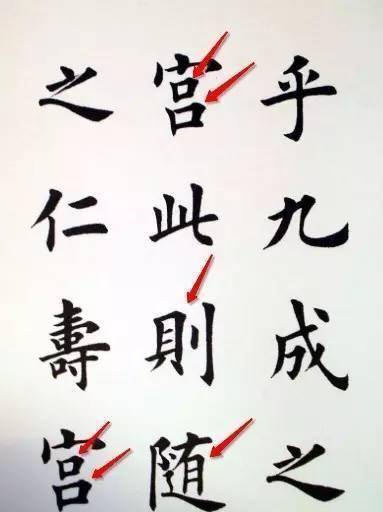 乎九成之
宫此則随
之仁壽宫